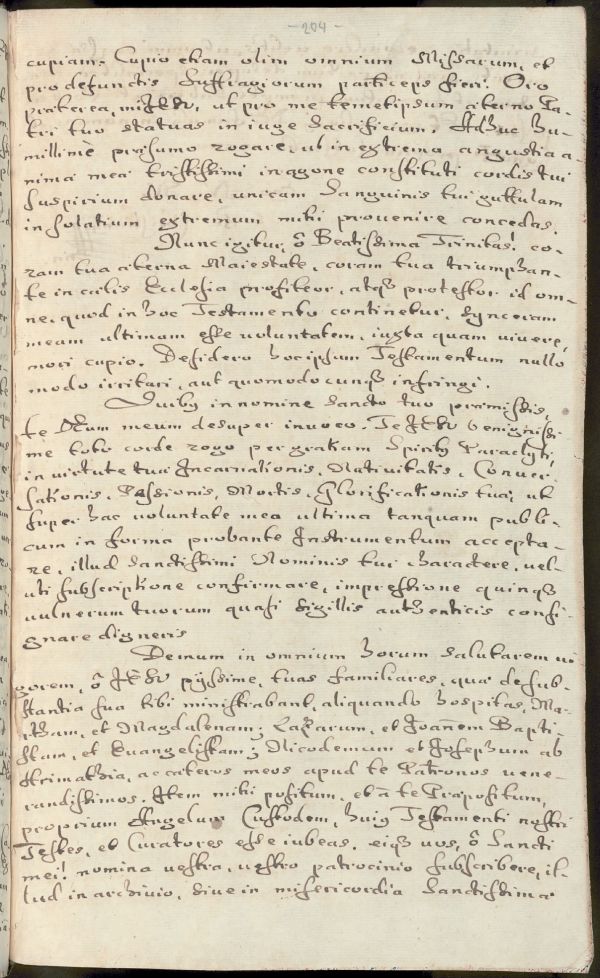 -204-
cupiam. Cupio etiam olim omnium Missarum, et
pro defunctis Suffragiorum particeps fieri. Oro
præterea, mi JESU, ut pro me temetipsum æterno Pa-
tri tuo statuas in iuge Sacrificium. Adhuc hu-
millimè præsumo rogare, ut in extrema angustia a-
nima mea tristissimi in agone constituti cordis tui
suspirium donare, unicam Sanguinis tui guttulam
in solatium extremum mihi provenire concedas.
Nunc igitur, ô Beatissima Trinitas! co-
ram tua æterna Maiestate, coram tua triumphan-
te in cælis Ecclesia profiteor, atq3 protestor id om-
ne, quod in hoc Testamento continetur, synceram
meam ultimam esse voluntatem, iuxta quam vivere,
mori cupio. Desidero hocipsum Testamentum nullo
modo irritari, aut quomodocunq3 infringi.
Quibus in nomine Sancto tuo præmissis,
te DEum meum desuper invoco. Te JESU benignissi-
me toto corde rogo per gratiam Spiritus Paraclyti,
in virtute tuæ Incarnationis, Nativitatis, Conver-
sationis, Passionis, Mortis, Glorificationis tuæ, ut
super hac voluntate mea ultima tanquam publi-
cum in forma probante Instrumentum accepta-
re, illud Sanctissimi Nominis tui charactere, vel-
uti subscriptione confirmare, impressione quinq3
vulnerum tuorum quasi sigillis authenticis consi-
gnare digneris
Demum in omnium horum salutarem vi-
gorem, ô JESU pijssime, tuas familiares, quæ de sub-
stantia sua tibi ministrabant, aliquando hospitas, Ma-
rtham, et Magdalenam; Lazarum, et Joañem Bapti-
stam, et Evangelistam; Nicodemum et Josephum ab
Arimathia, ac cæteros meos apud te Patronos vene-
randissimos. Item mihi positum, et à te Præpositum,
proprium Angelum Custodem, huius Testamenti nostri
Testes, et Curatores esse iubeas. eiq3 vos, ô Sancti
mei! nomina vestra, vestro patrocinio subscribere, il-
lud in archivio, sive in misericordia Sanctissima